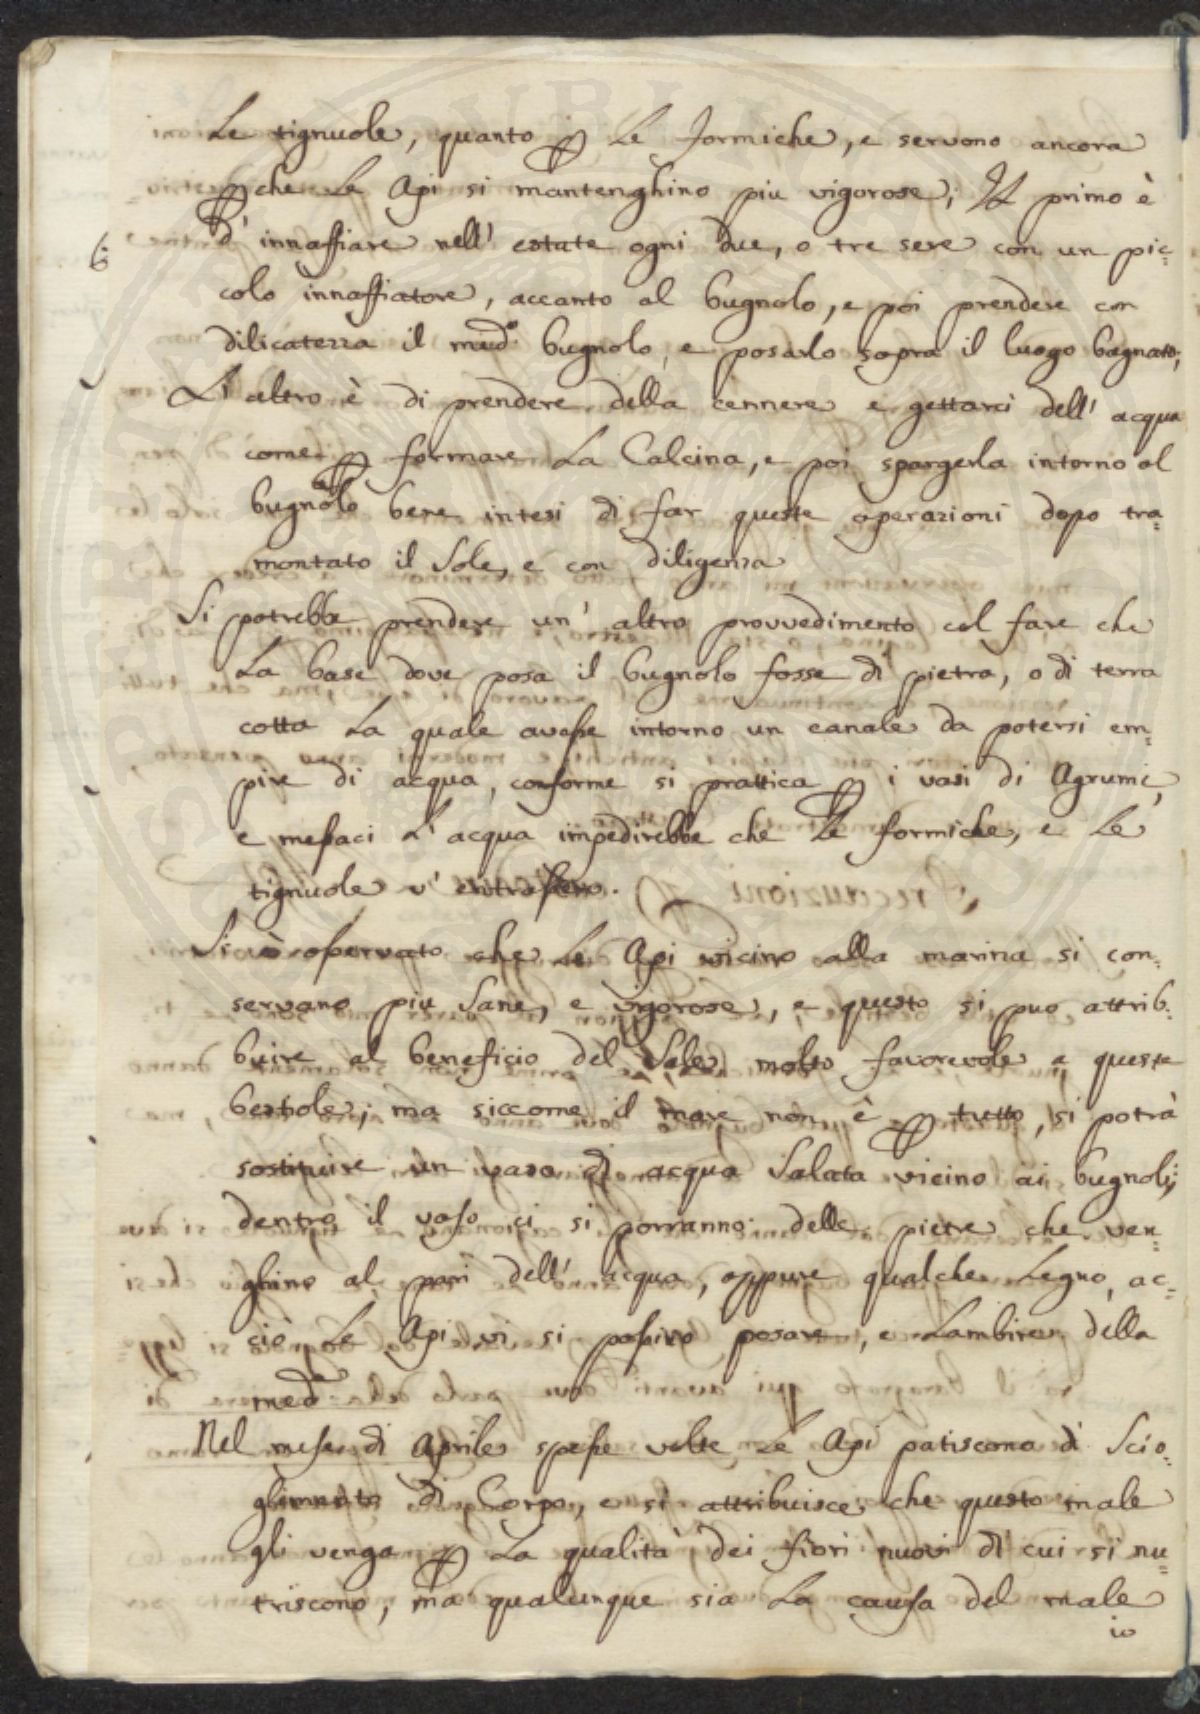 Le tignuole, quanto p Le formiche, e servono ancora
p che Le Api si mantenghino piu vigorose; Il primo è
6: d' innaffiare nell' estate ogni due, o tre sere con un pic=
colo innaffiatore, accanto al bugnolo, e poi prendere con
dilicatezza il med.o bugnolo, e posarlo sopra il luogo bagnato;
L' altro è di prendere della cennere e gettarci dell' acqua
come p formare La Calcina, e poi spargerla intorno al
bugnolo bene intesi di far queste operazioni dopo tra=
montato il Sole, e con diligenza
Si potrebbe prendere un' altro provvedimento col fare che
La base dove posa il bugnolo fosse di pietra, o di terra
cotta La quale avesse intorno un canale da potersi em=
pire di acqua, conforme si prattica p i vasi di Agrumi,
e messaci L' acqua impedirebbe che Le formiche, e Le
tignuole v' entrassero.
Si è osservato che Le Api vicino alla marina si con=
servano piu Sane, e vigorose, e questo si puo attrib=
buire al beneficio del Sale molto favorevole a queste
bestiole; ma siccome il mare non è p tutto, si potrà
sostituire un vaso di acqua Salata vicino ai bugnoli;
dentro il vaso ci si porranno delle pietre che ven=
ghino al pari dell' acqua, oppure qualche Legno, ac=
ciò Le Api vi si possino posare, e Lambire della
med.a
Nel mese di Aprile spesse volte Le Api patiscono di Scio=
glimento di Corpo, e si attribuisce che questo male
gli venga p La qualità dei fiori nuovi di cui si nu=
triscono, ma qualunque sia La causa del male
io